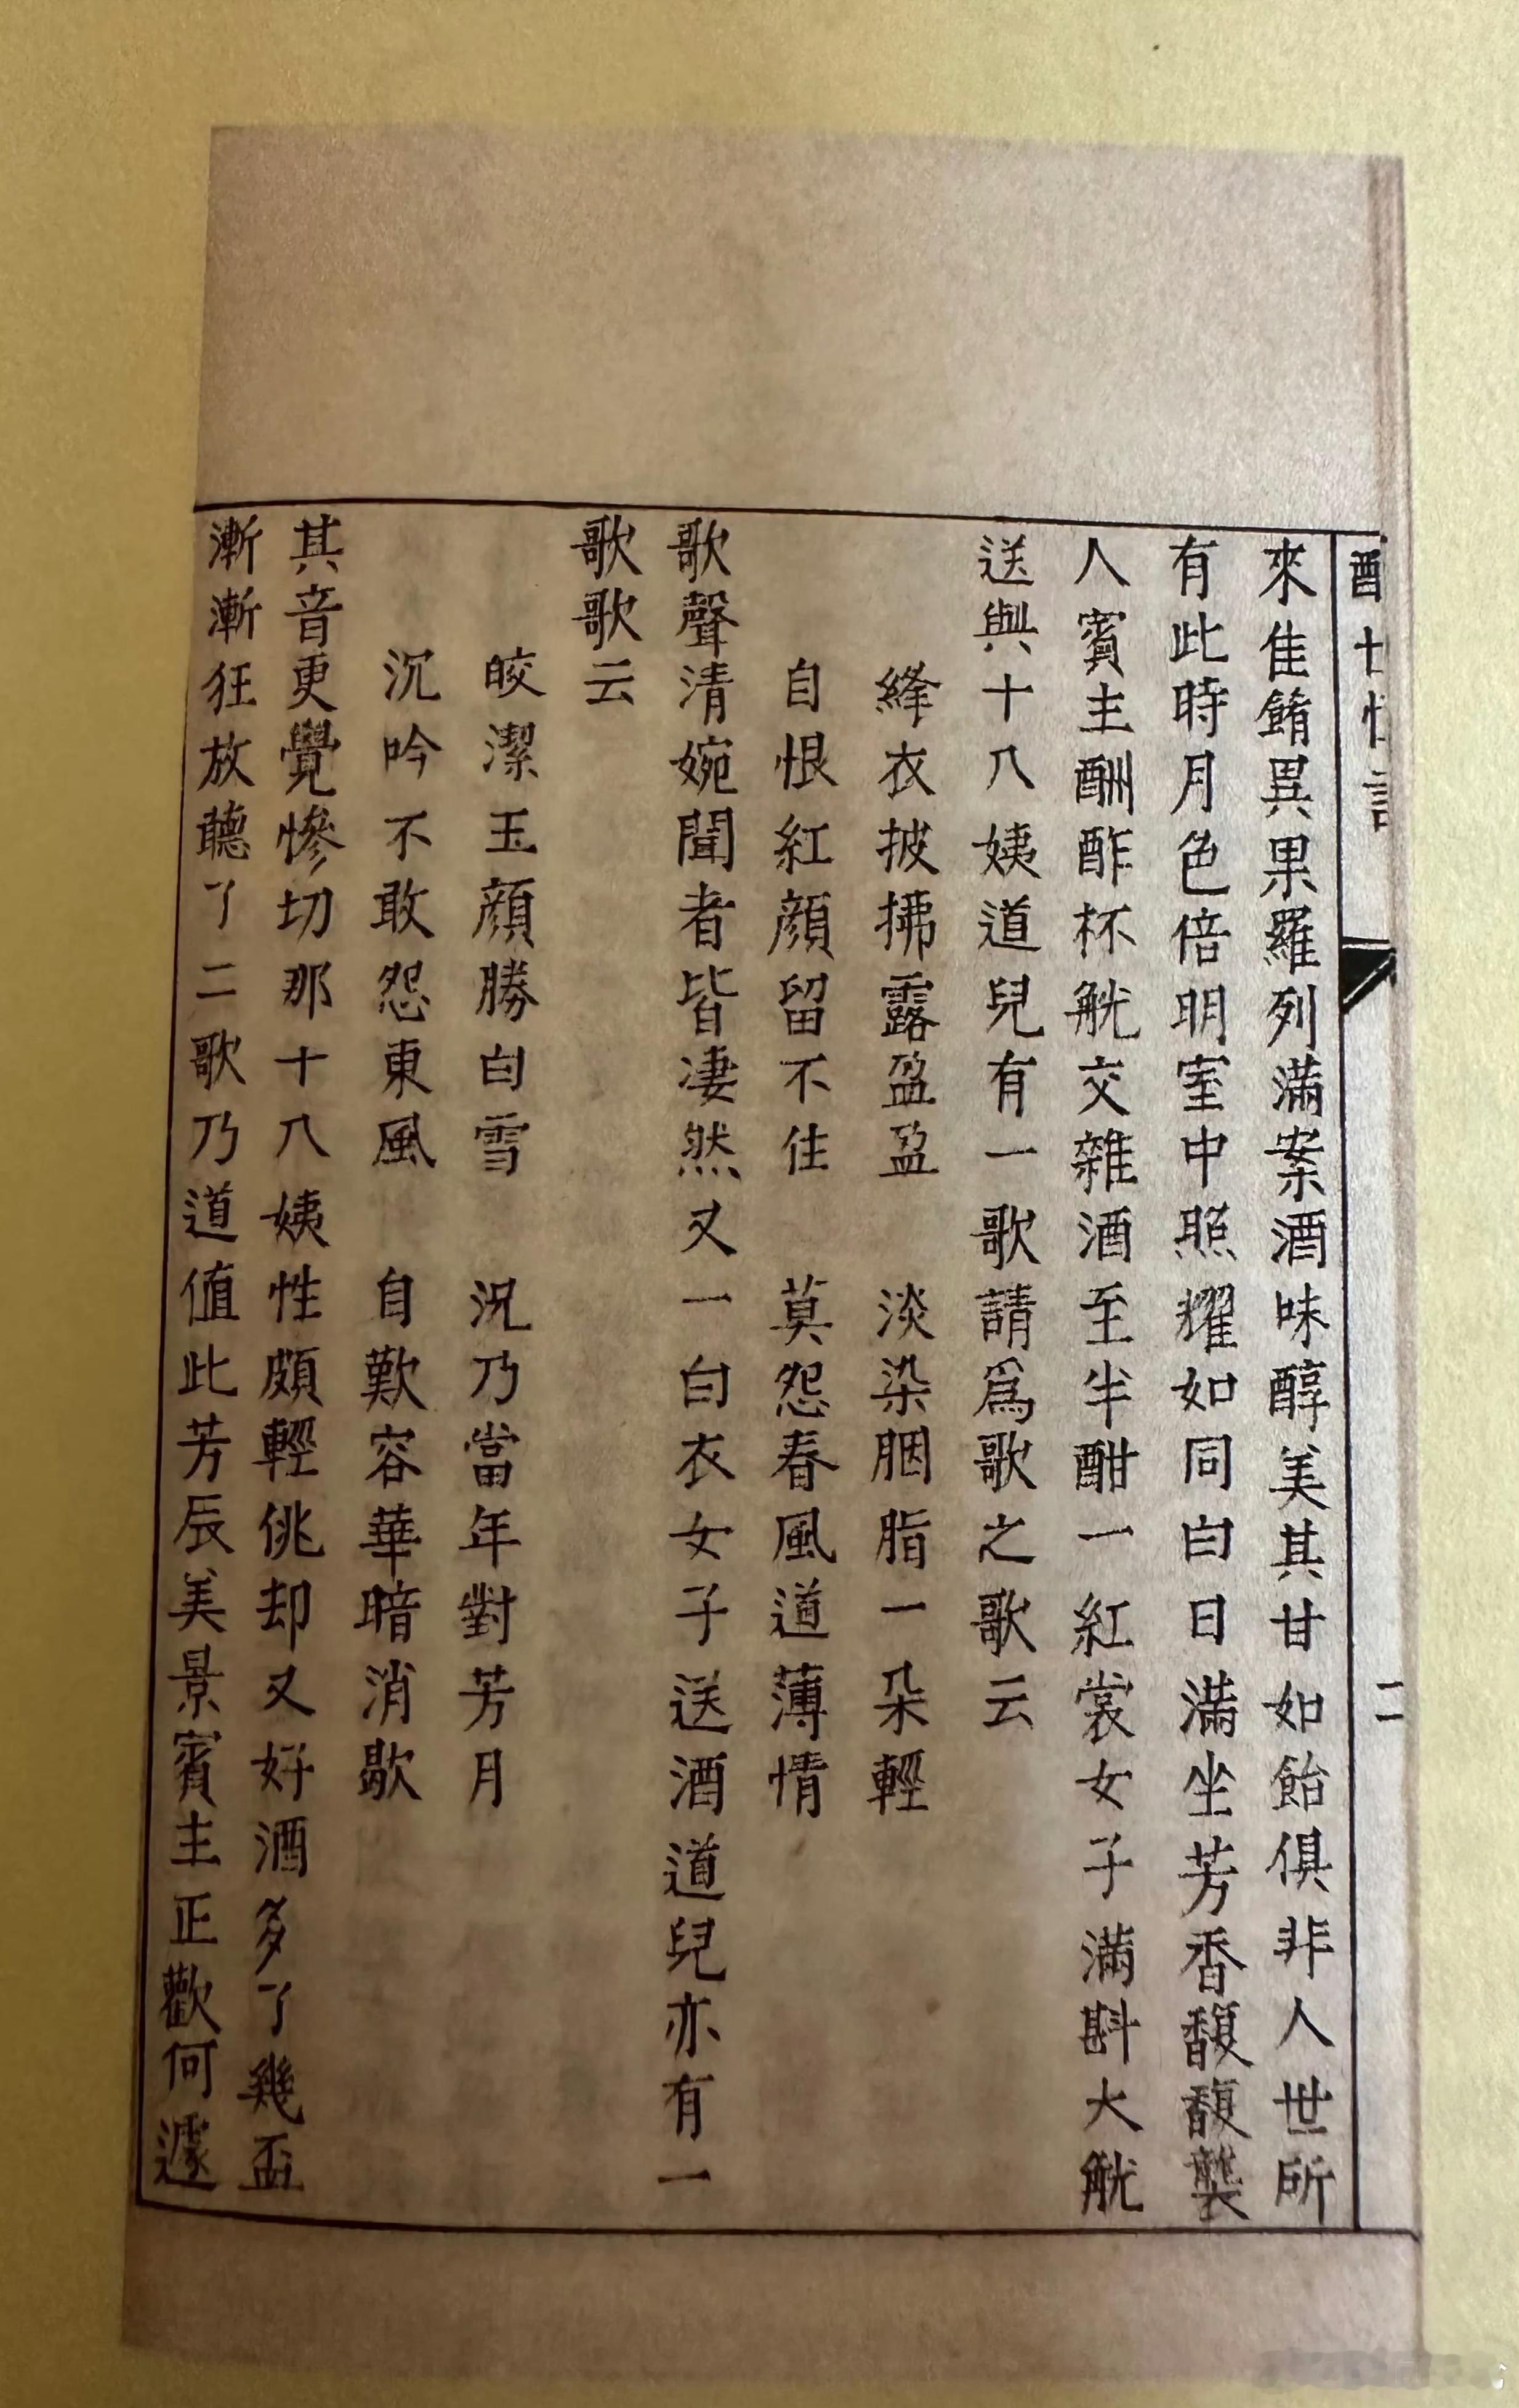 二
來佳餚異果羅列滿案酒味醇美其甘如飴俱非人世所
有此時月色倍明室中照耀如同白日滿坐芳香馥馥襲
人賓主酬酢杯觥交雜酒至半酣一紅裳女子滿斟大觥
送與十八姨道兒有一歌請爲歌之歌云
絳衣披拂露盈盈　淡染胭脂一朵輕
自恨紅顏留不住　莫怨春風道薄情
歌聲清婉聞者皆凄然又一白衣女子送酒道兒亦有一
歌歌云
皎潔玉顏勝白雪　況乃當年對芳月
沉吟不敢怨東風　自歎容華暗消歇
其音更覺慘切那十八姨性頗輕佻却又好酒多了幾盃
漸漸狂放聽了二歌乃道值此芳辰美景賓主正歡何遽